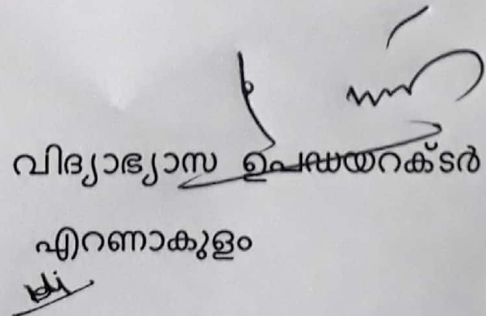 വിദ്യാഭ്യാസ ഉപഡയറക്ടർ
എറണാകുളം